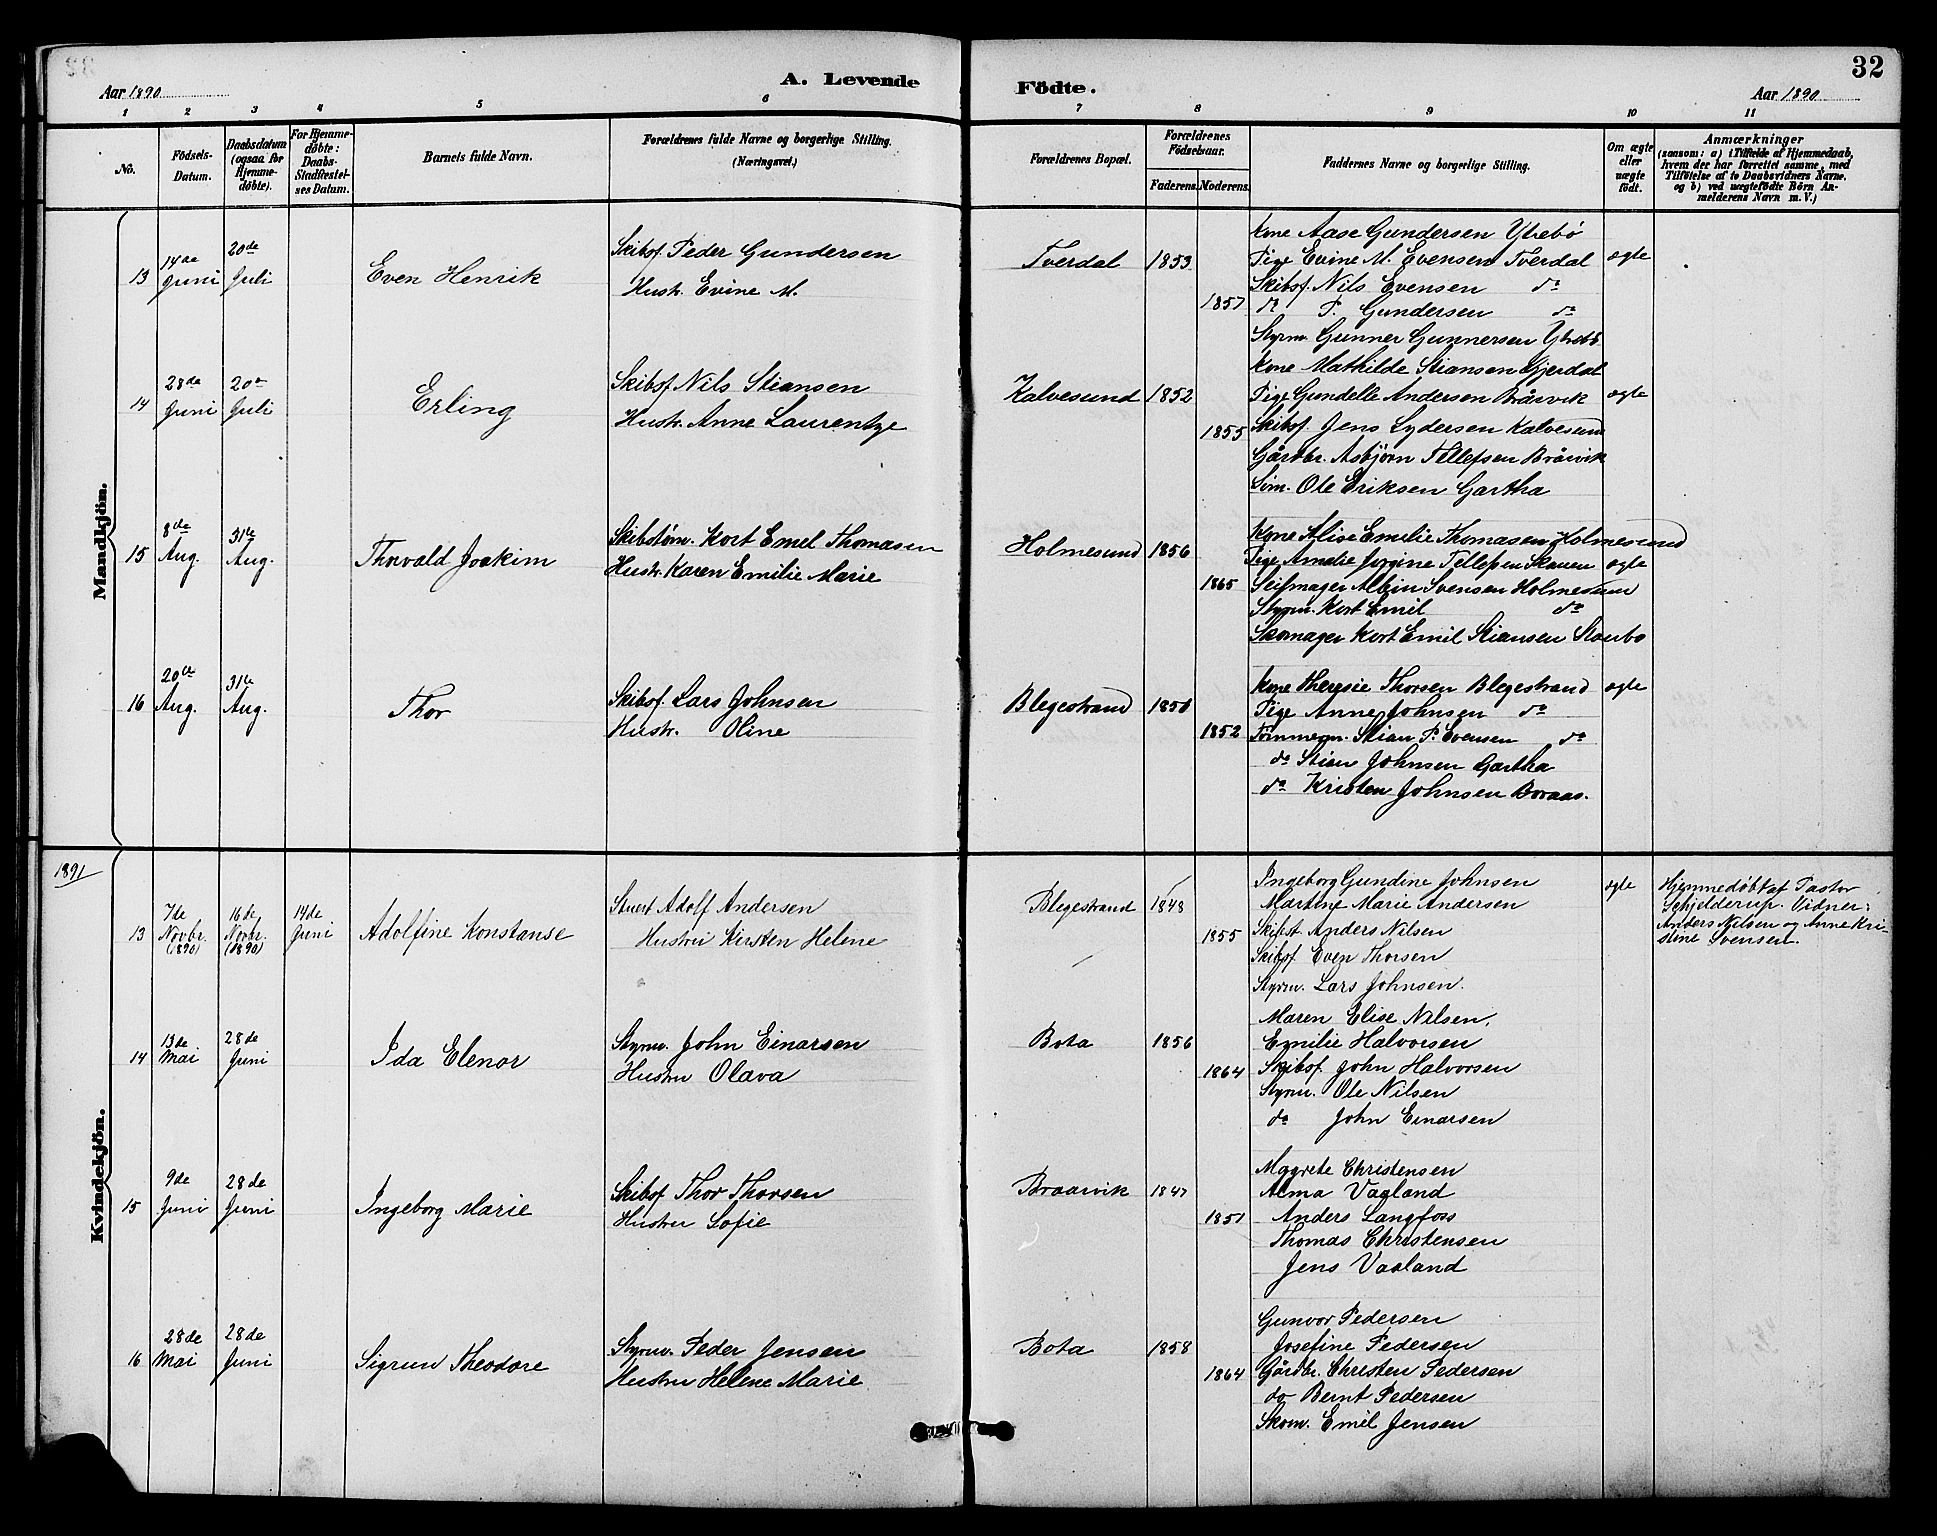 A. Levende Födte.
32
Aar 1890
Aar 1890
1 2 3 4 5 6 7 8 9 10 11
No.
Födsels-Datum.
Daabsdatum (ogsaa for Hjemme-døbte).
For Hjemme-døbte: Daabs-Stadfæstel-ses Datum.
Barnets fulde Navn.
Forældrenes fulde Navne og borgerlige Stilling. (Næringsvei.)
Forældrenes Bopæl.
Forældrenes Födselsaar.
Faderens. Moderens.
Faddernes Navne og borgerlige Stilling.
Om ægte eller uægte födt.
Anmærkninger
(saasom: a) i Tilfælde af Hjemmedaab,
hvem der har forrettet samme, med
Tilföielse af to Daabsvidners Navne.
og b) ved uægtefödte Börn An-
melderens Navn m. V.)
Mandkjön.
13 14de Juni 20de Juli
Even Henrik
Skibsf. Peder Gundersen
Hustr. Evine M.
Tverdal 1853
1857
Kone Aase Gundersen Ytrebö
Pige Evine M. Evensen Tverdal ægte
Skibsf. Nils Evensen do
do P. Gundersen do
Styrm. Gunner Gunnersen Ytrebö
14 28de Juni 20de Juli
Erling
Skibsf. Nils Stiansen
Hustr. Anne Laurentze
Kalvesund 1852
1855
Kone Mathilde Stiansen Gjerdal
Pige Gundelle Andersen Bråvik ægte
Skibsf. Jens Lydersen Kalvesund
Gårdbr. Asbjørn Tellefsen Bråvik
Søm. Ole Eriksen Gartha
15 8de Aug. 31te Aug.
Thorvald Joakim
Skibstøm. Kort Emel Thomasen
Hustr. Karen Emilie Marie
Holmesund 1856
1865
Kone Alise Emilie Thomasen Holmesund
Pige Amalie Jørgine Tellefsen Skauen ægte
Seilmager Albin Svensen Holmesun
Styrm. Kort Emil do
Skomager Kort Emil Stiansen Staubo
16 20de Aug. 31te Aug.
Thor
Skibsf. Lars Johnsen
Hustr. Oline
Blegestrand 1850
1852
Kone Theresie Thorsen Blegestrand ægte
Pige Anne Johnsen do
Tømmerm. Stian P. Evensen do
do Stian Johnsen Gartha
do Kristen Johnsen Boraas.
1891
Kvindekjön.
13 7de Novbr. (1890) 16de Novbr. (1890) 14de Juni
Adolfine Konstanse
Stuert Adolf Andersen
Hustru Kirsten Helene
Blegestrand 1848
1855
Ingeborg Gundine Johnsen ægte
Martine Marie Andersen
Skibst Anders Nilsen
Skibsf Even Thorsen
Styrm. Lars Johnsen.
Hjemmedøbt af Pastor
Schjelderup. Vidner:
Anders Nilsen og Anne Kri-
stine Svensen.
14 13de Mai 28de Juni
Ida Elenor
Styrm. John Einarsen
Hustru Olava
Bota 1856
1864
Maren Elise Nilsen,
Emilie Halvorsen
Skibsf. John Halvorsen
Styrm. Ole Nilsen
do John Einarsen
15 9de Juni 28de Juni
Ingeborg Marie
Skibsf. Thor Thorsen
Hustru Sofie
Braarvik 1847
1851
Magrete Christensen
Alma Vaaland
Anders Langfoss
Thomas Christensen
Jens Vaaland
16 28de Mai 28de Juni
Sigrun Theodore
Styrm. Peder Jensen
Hustru Helene Marie
Bota 1858
1864
Gunvor Pedersen
Josefine Pedersen
Gårdbr. Christen Pedersen
do Bernt Pedersen
Skom. Emil Jensen